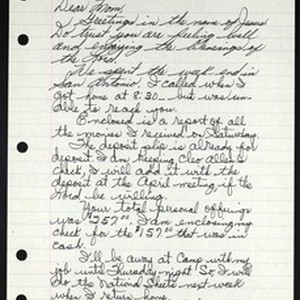 Dear Mom,
Greetings in the name of Jesus
Do trust you are feeling well
and enjoying the blessings of
the Lord.
We spent the week end in
San Antonio. I called when I
got home at 8:30.. but was un-
able to reach you.
Enclosed is a report of all
the monies I received on Saturday.
The deposit slip is already for
deposit. I am keeping Cleo Allen's
check, I will add it with the
deposit at the April meeting, if the
Lord be willing.
Your total personal offerings
was $252⁰⁰. I am enclosing my
check for the $157⁰⁰ that was in
cash.
I'll be away at Camp with my
job until Thursday night. So I will
do the National Sheets next week
when I return home.